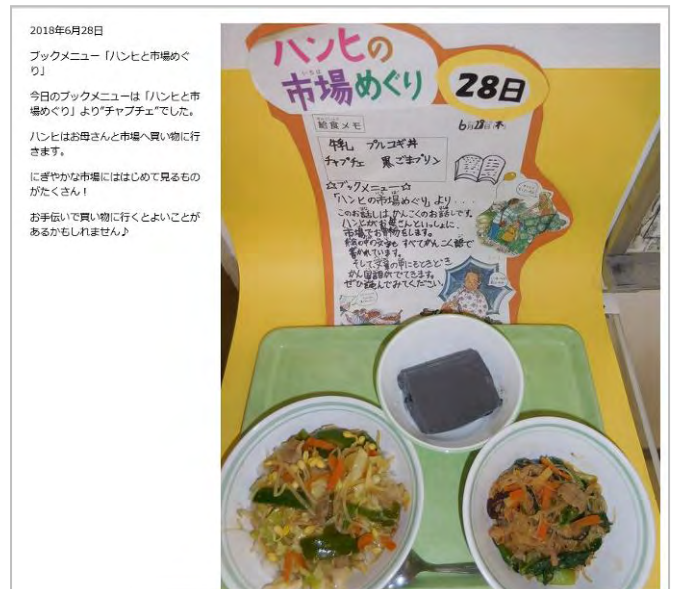 2018年6月28日
ブックメニュー「ハンヒと市場めぐ
り」
今日のブックメニューは「ハンヒと市
場めぐり」より“チャプチェ”でした。
ハンヒはお母さんと市場へ買い物に行
きます。
にぎやかな市場にははじめて見るもの
がたくさん！
お手伝いで買い物に行くとよいことが
あるかもしれません♪
ハンヒの
市場めぐり
いちば
28日
給食メモ
6月28日 木
牛乳 プルコギ丼
チャプチェ 黒ごまプリン
☆ブックメニュー☆
「ハンヒの市場めぐり」より...
このお話しは、かんこくのお話しです。
ハンヒがお母さんといっしょに、
市場でお買物をします。
絵の中の文字も すべてかんこく語で
書かれています。
そして文章の中にもときどき
かん国語がでてきます。
ぜひ読んでみてください。